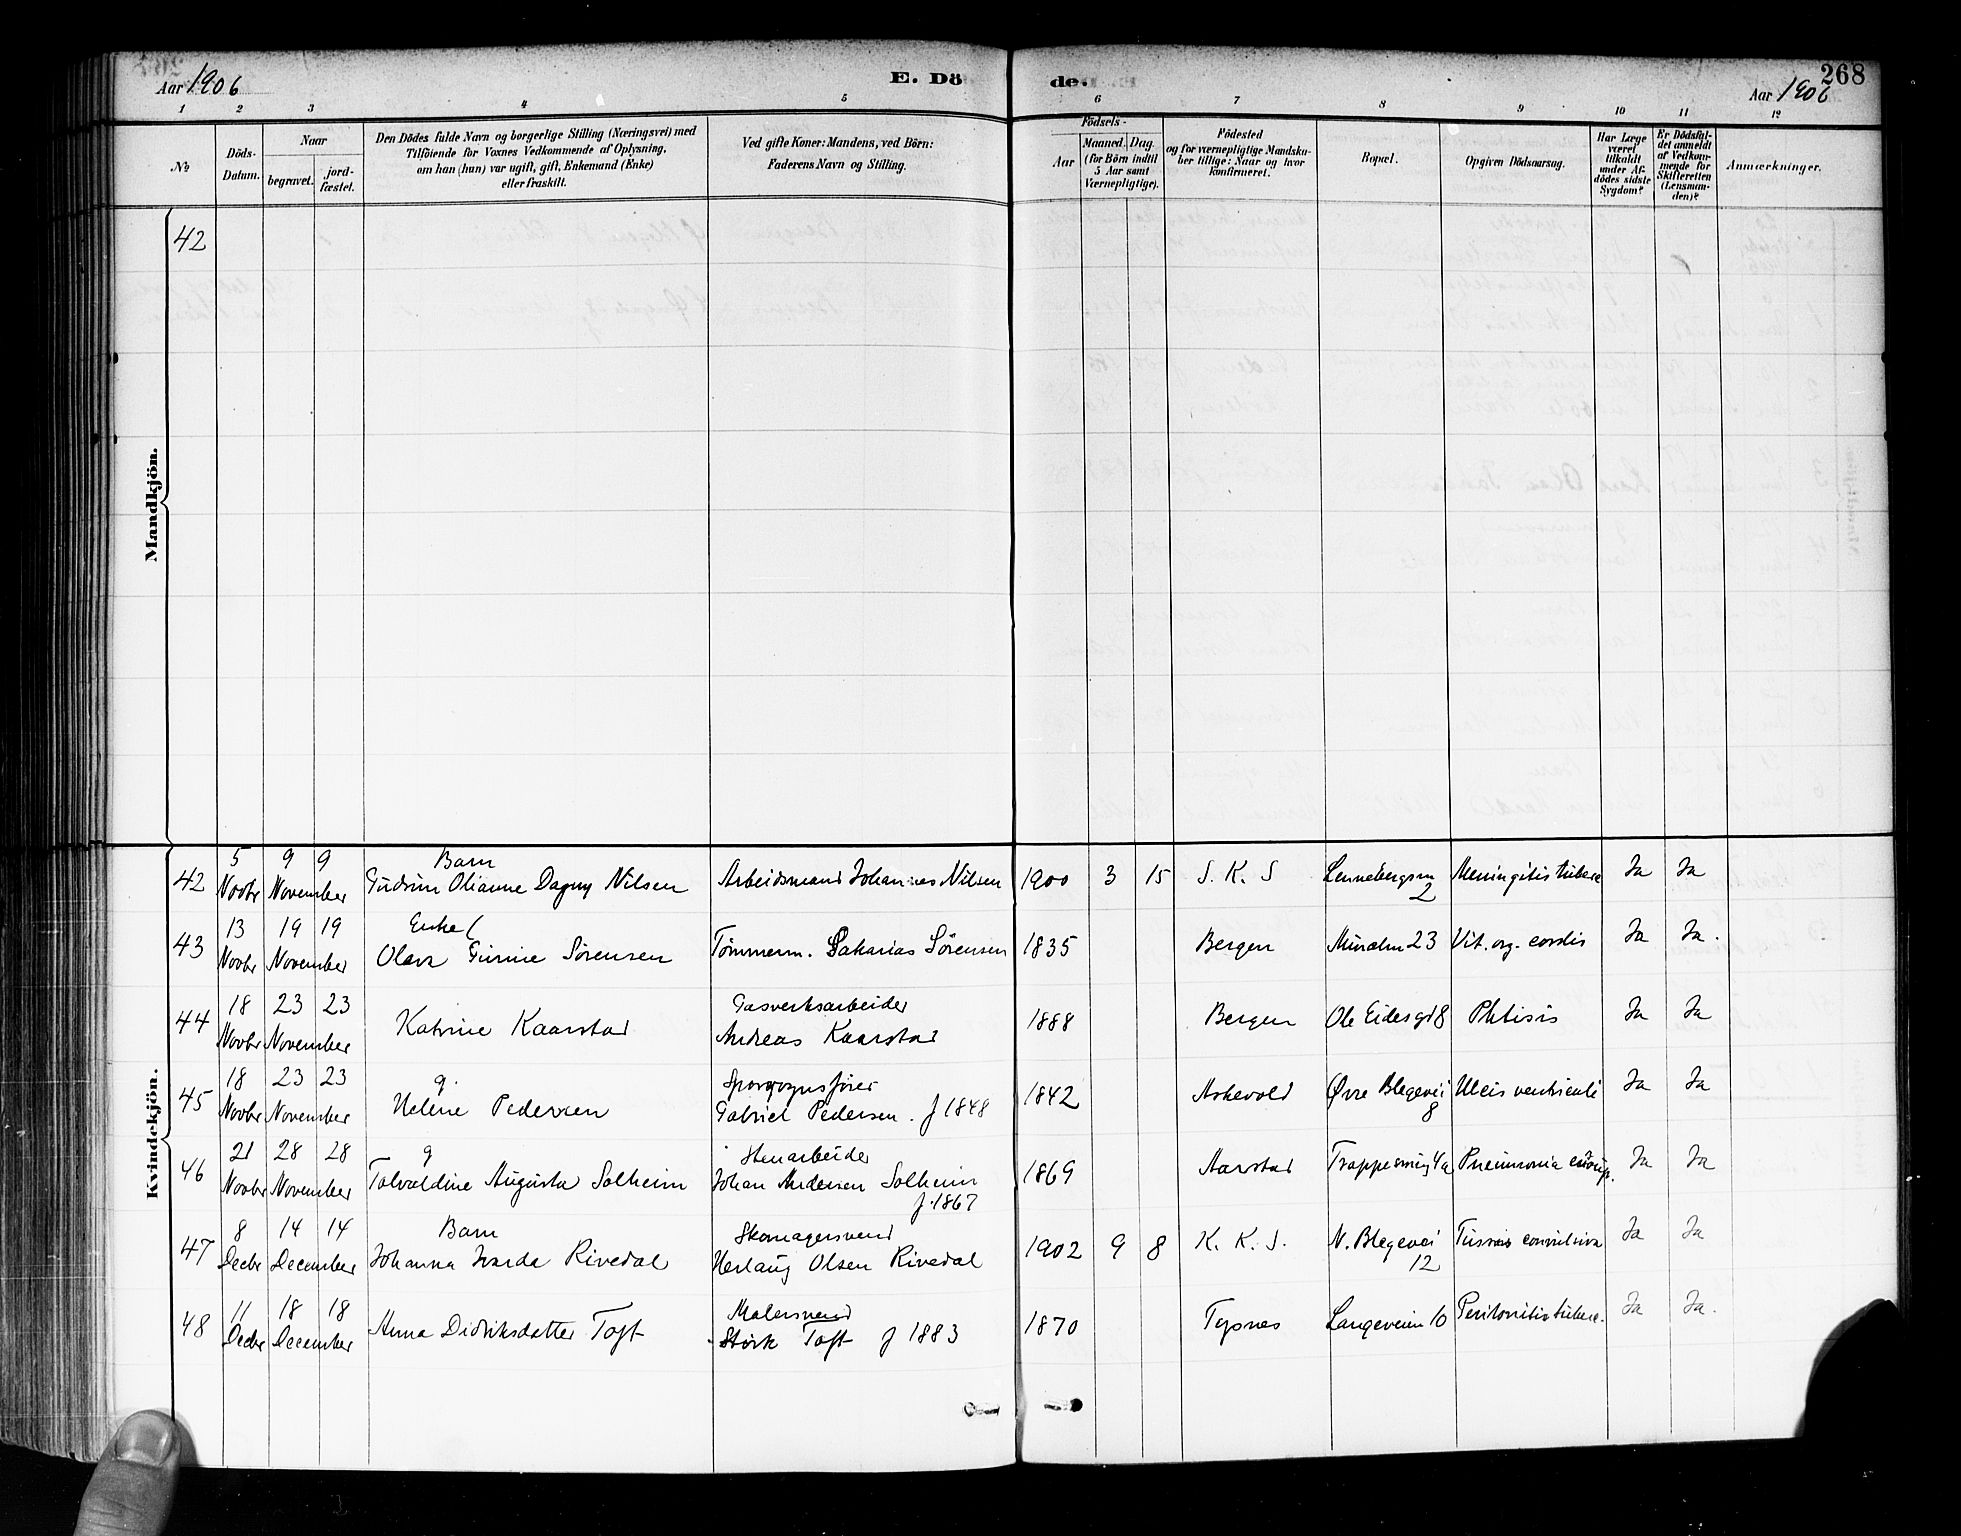 Aar 1906
E. Döde.
Aar 1906
268
1 2 3 4 5 6 7 8 9 10 11 12
№
Döds-Datum.
Naar
begravet.
jord-fæstet.
Den Dödes fulde Navn og borgerlige Stilling (Næringsvei) med
Tilföiende for Voxnes Vedkommende af Oplysning,
om han (hun) var ugift, gift, Enkemand (Enke)
eller fraskilt.
Ved gifte Koner: Mandens, ved Börn:
Faderens Navn og Stilling.
Födsels-
Aar
Maaned. Dag.
(for Börn indtil
5 Aar samt
Værnepligtige).
Födested
og for værnepligtige Mandska-
ber tillige: Naar og hvor
konfirmeret.
Bopæl.
Opgiven Dödsaarsag.
Har Læge
været
tilkaldt
under Af-
dödes sidste
Sygdom?
Er Dödsfal-
det anmeldt
af Vedkom-
mende for
Skifteretten
(Lensman-
den)?
Anmærkninger.
Mandkjön.
42
Kvindekjön.
5 9 9 Barn
42 Novbr November Gudrun Olianne Dagny Nilsen Arbeidsmand Johannes Nilsen 1900 3 15 S. K. S Lennebergsm 2 Meningitis tuberc Ja Ja
13 19 19 Enke
43 Novbr November Olava Gurine Sörensen Tømmerm. Sakarias Sörensen 1835 Bergen Muralm 23 Vit. org. cordis Ja Ja.
18 23 23 Gasverksarbeider
44 Novbr November Katrine Kaarstad Andreas Kaarstad 1888 Bergen Ole Eidesgd 8 Phtisis Ja Ja
18 23 23 g. Sporvognsfører
45 Novbr November Helene Pedersen Gabriel Pedersen. f 1848 1842 Askevold Øvre Blegevei 8 Ulcis ventriculi Ja Ja
21 28 28 g Stenarbeider
46 Novbr November Tolvaldine Augusta Solheim Johan Andersen Solheim f. 1867 1869 Aarstad Trappesmug 4a Pneumonia croup. Ja Ja
8 14 14 Barn Skomagersvend
47 Decbr December Johanna Rivedal Herlaug Olsen Rivedal 1902 9 8 K. K. S. N. Blegevei 12 Tussis convulsiva Ja Ja
11 18 18 Malersvend
48 Decbr December Anna Didriksdatter Toft Störk Toft f 1883 1870 Tysnes Langeveien 10 Peritonitis tuberc. Ja Ja.